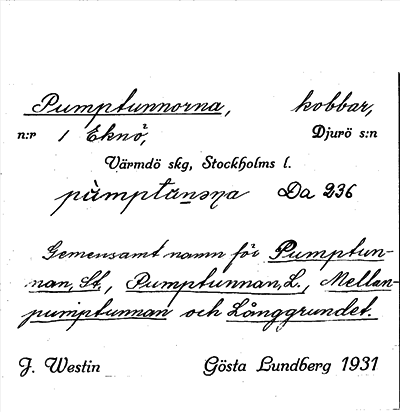 Pumptunnorna, kobbar,
n:r 1 Eknö, Djurö s:n
Värmdö skg, Stockholms l.
pùmptànəṇa Da 236
Gemensamt namn för Pumptun-
nan, St., Pumptunnan, L., Mellan-
pumptunnan och Långgrundet.
J. Westin Gösta Lundberg 1931